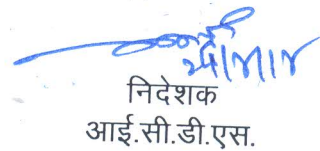 निदेशक
आई.सी.डी.एस.